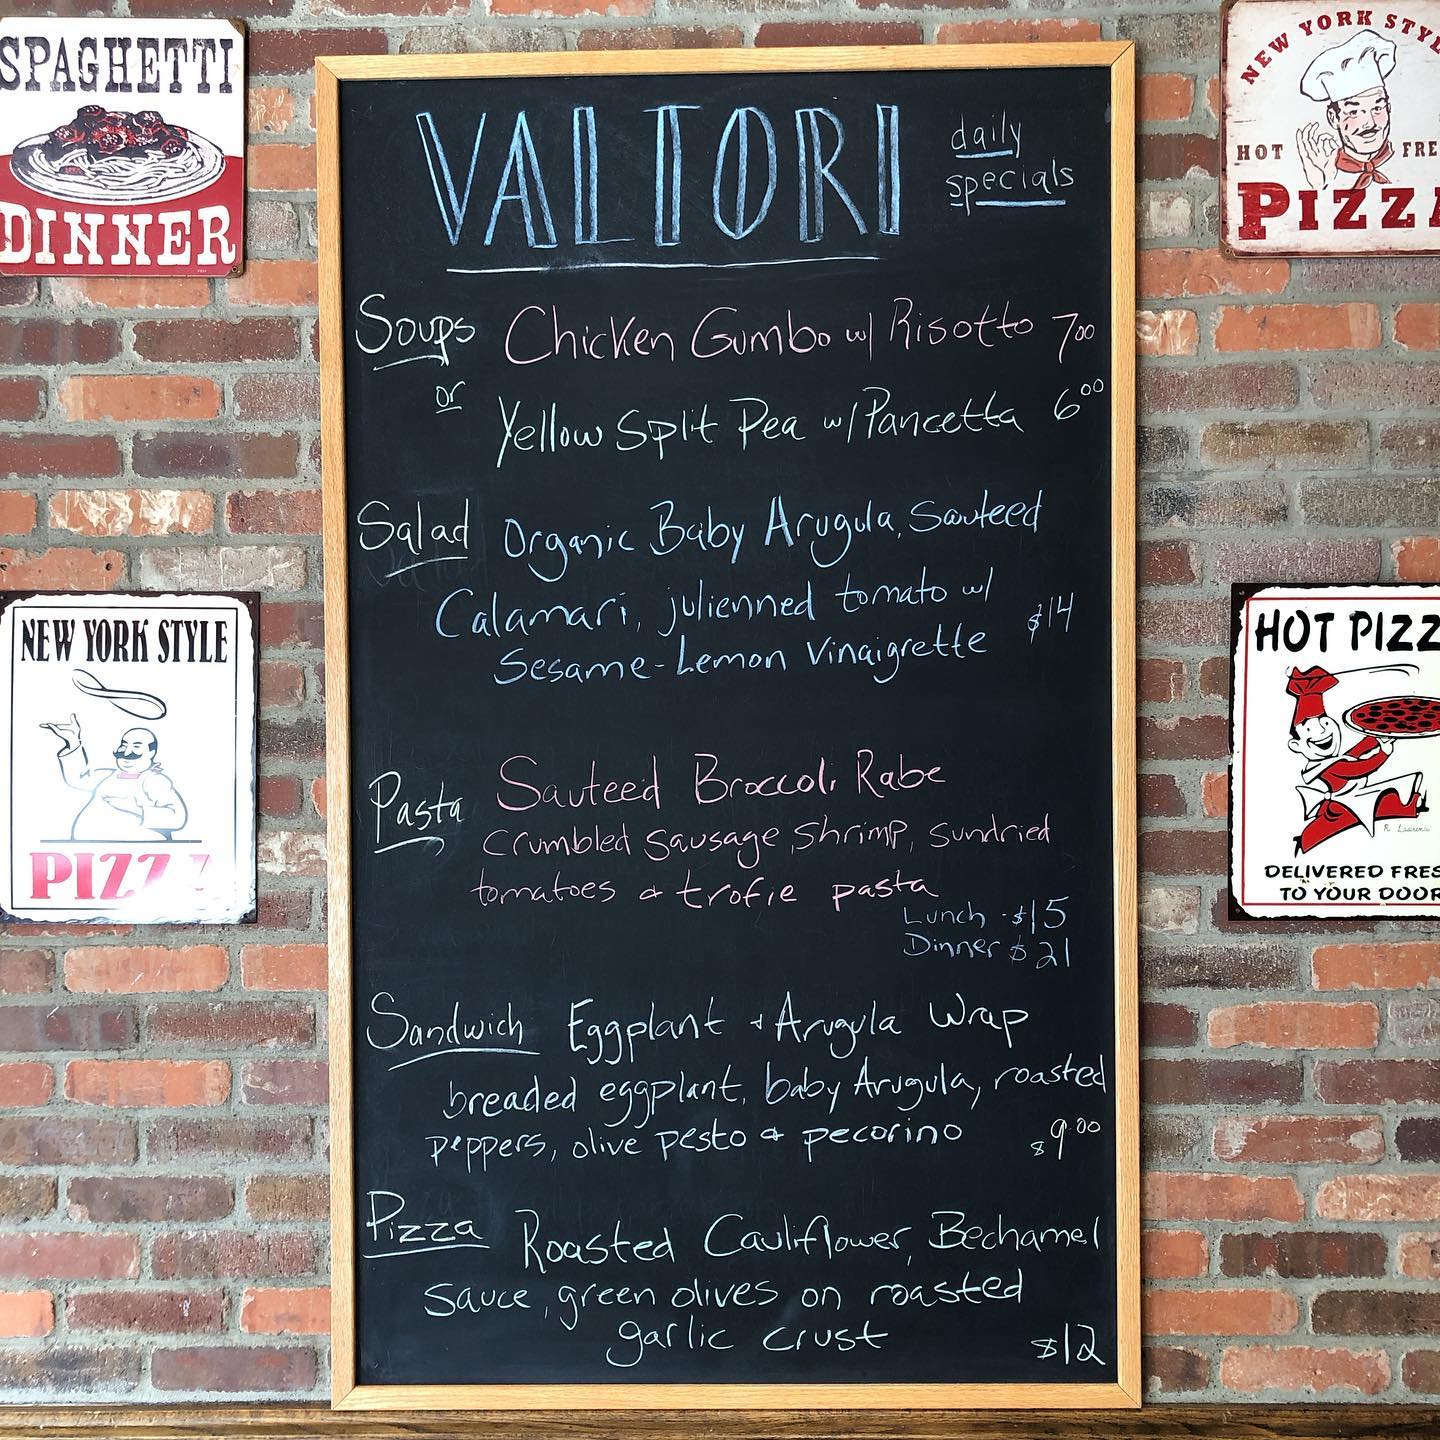 SPAGHETTI
DINNER
NEW YORK STYLE
PIZZA
VALTORI
daily
specials
Soups Chicken Gumbo w/ Risotto 7.00
or
Yellow Split Pea w/ Pancetta 6.00
Salad Organic Baby Arugula, Sauteed
Calamari, julienned tomato w/
Sesame-Lemon Vinaigrette $14
Pasta Sauteed Broccoli Rabe
Crumbled sausage, shrimp, sundried
tomatoes & trofie pasta
Lunch - $15
Dinner $21
Sandwich Eggplant & Arugula Wrap
breaded eggplant, baby Arugula, roasted
peppers, olive pesto & pecorino $9.00
Pizza Roasted Cauliflower, Bechamel
sauce, green olives on roasted
garlic crust $12
NEW YORK STYL
HOT FRE
PIZZA
HOT PIZZ
DELIVERED FRES
TO YOUR DOOR